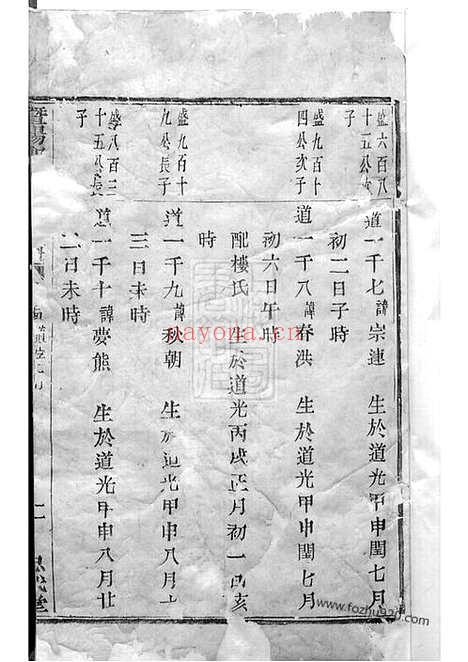 盛六百八
十五公次
子
道一千七諱宗連 生於道光甲申閏七月
初二日子時
盛九百十
四公次子
道一千八諱春洪 生於道光甲申閏七月
初六日午時
配樓氏 生於道光丙戌正月初一日亥
時
盛九百十
九公長子
道一千九諱秋朝 生於道光甲申八月十
三日未時
盛八百三
十五公長
子
道一千十諱夢熊 生於道光甲申八月廿
二日未時
暨陽
二
nayona.cn
www.fozhu920.com